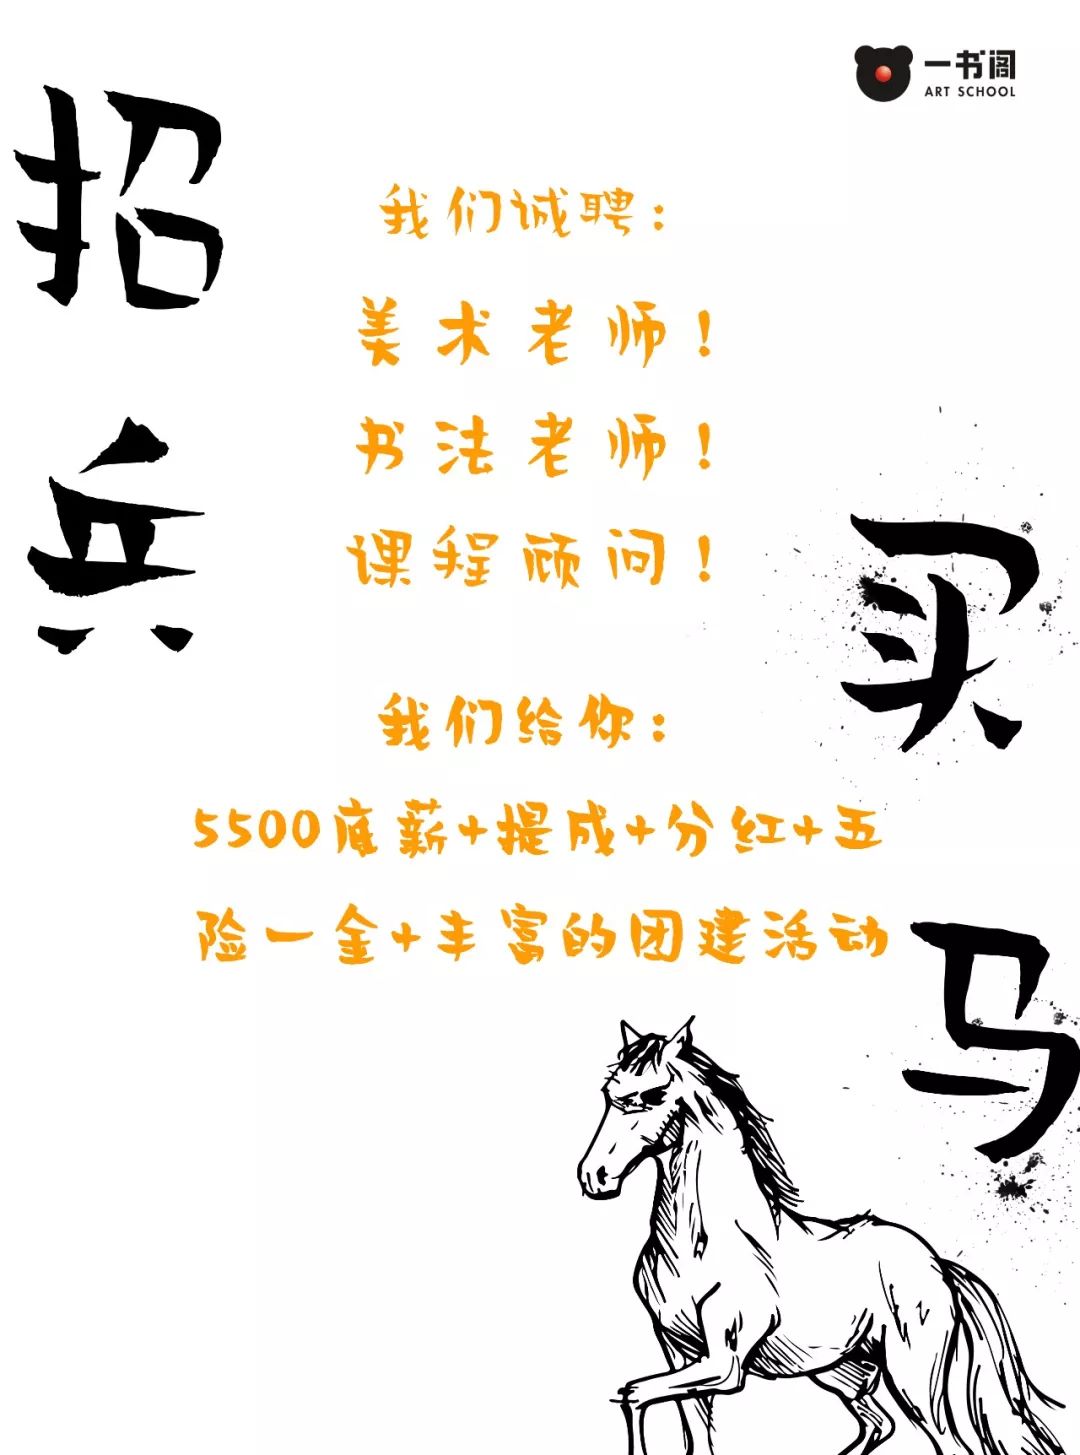 一书阁
ART SCHOOL
招
兵
买
马
我们诚聘：
美术老师！
书法老师！
课程顾问！
我们给你：
5500底薪+提成+分红+五
险一金+丰富的团建活动